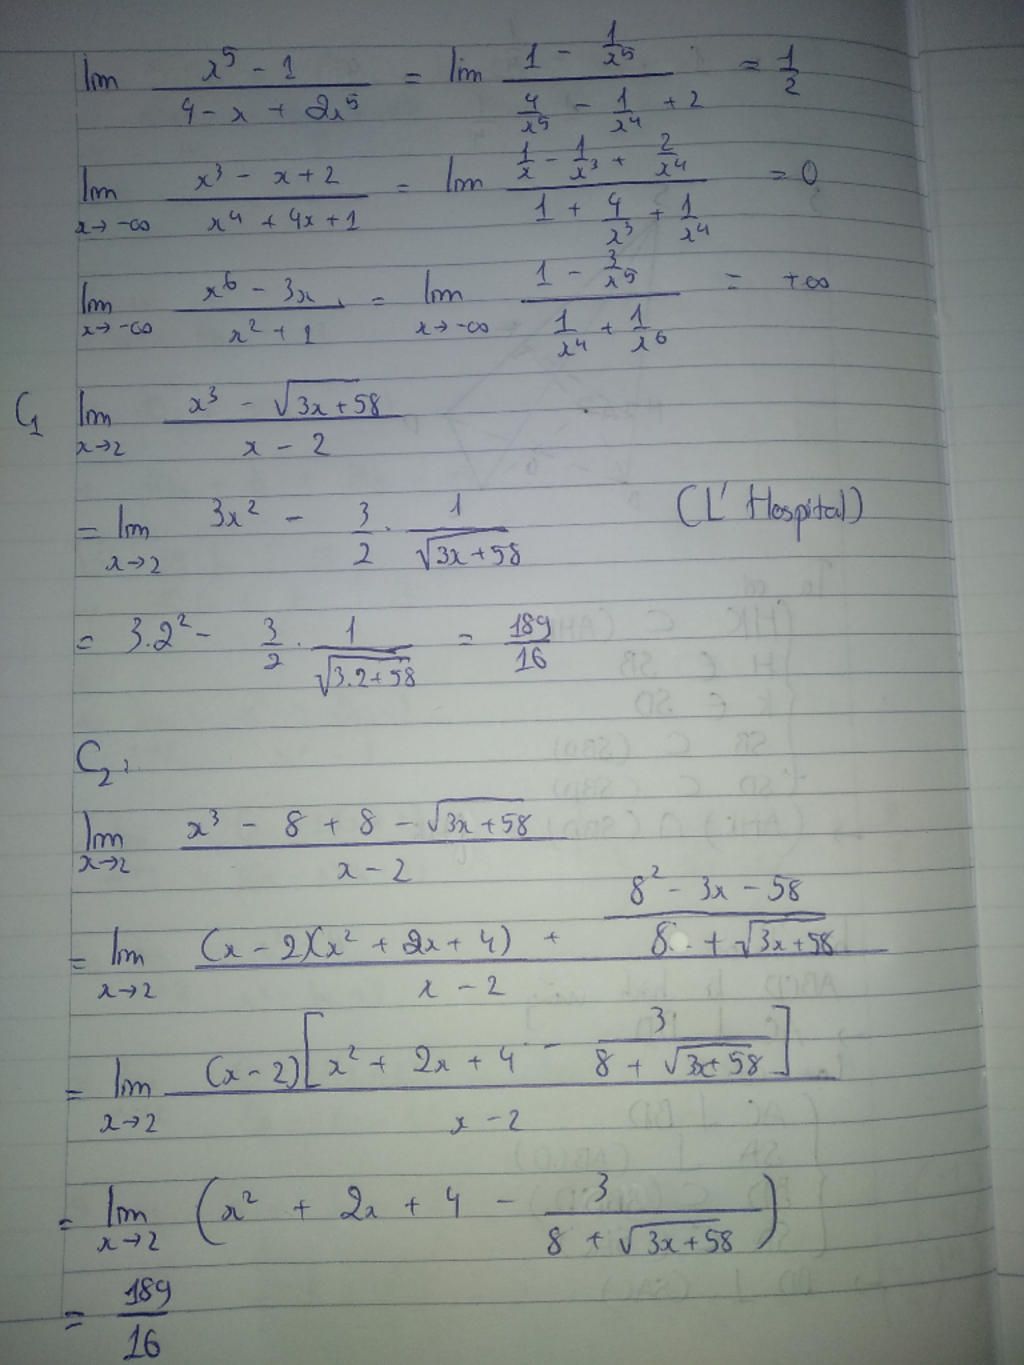 lim (x⁵ - 1)/(4 - x + 2x⁵) = lim (1 - 1/x⁵)/(4/x⁵ - 1/x⁴ + 2) = 1/2
lim x→-∞ (x³ - x + 2)/(x⁴ + 4x + 1) = lim (1/x - 1/x³ + 2/x⁴)/(1 + 4/x³ + 1/x⁴) = 0
lim x→-∞ (x⁶ - 3x)/(x² + 1) = lim x→-∞ (1 - 3/x⁵)/(1/x⁴ + 1/x⁶) = +∞
C₁ lim x→2 (x³ - √(3x+58))/(x - 2)
= lim x→2 3x² - 3/2 . 1/√(3x+58) (L' Hospital)
= 3.2² - 3/2 . 1/√(3.2+58) = 189/16
C₂:
lim x→2 (x³ - 8 + 8 - √(3x+58))/(x - 2)
= lim x→2 ((x - 2)(x² + 2x + 4) + (8² - 3x - 58)/(8 + √(3x+58)))/(x - 2)
= lim x→2 ((x - 2)[x² + 2x + 4 - 3/(8 + √(3x+58))])/(x - 2)
= lim x→2 (x² + 2x + 4 - 3/(8 + √(3x+58)))
= 189/16